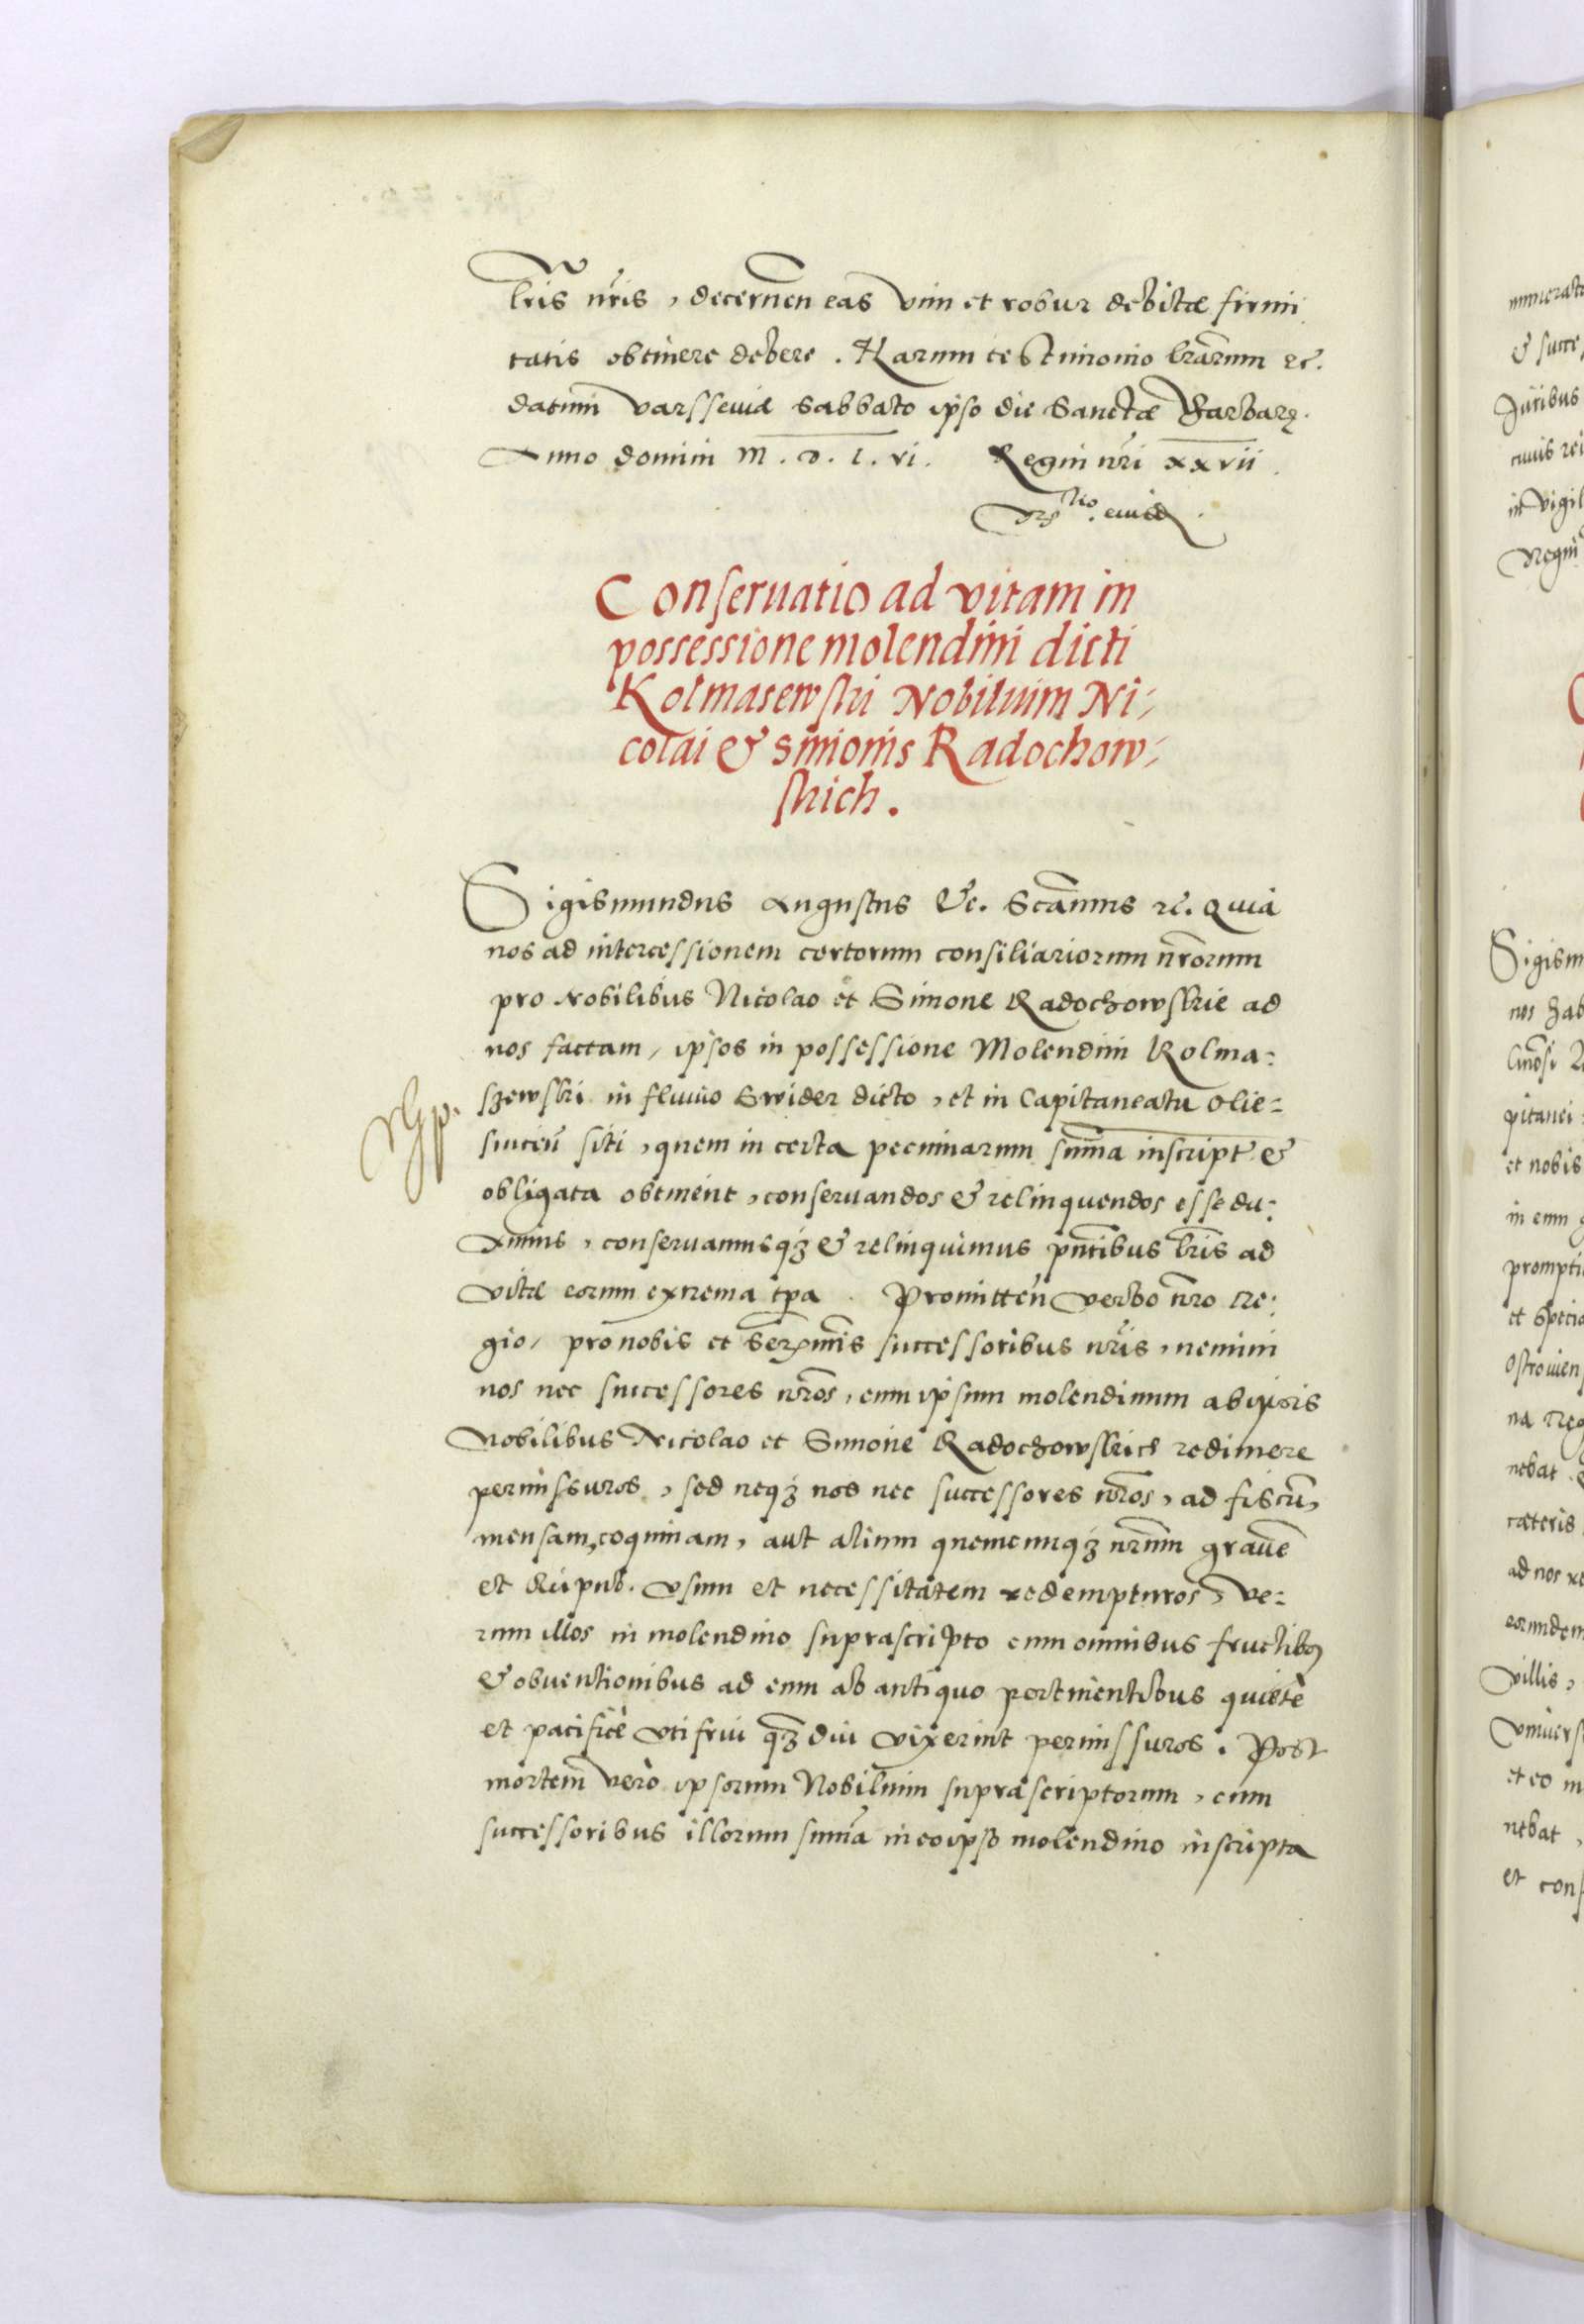 lris nris, decernen eas vim et robur debitæ firmi
tatis obtinere debere. Harum testimonio lrarum etc.
datum Varsseviæ Sabbato ipso die Sanctæ Barbaræ.
Anno domini M. D. L. vi. Regni nri xxvii.
eiusd
Conservatio ad vitam in
possessione molendini dicti
Kolmasewski Nobilium Ni-
colai & Simonis Radochow-
skich.
Sigismundus Augustus &c. Scamus etc. Quia
nos ad intercessionem certorum consiliariorum nrorum
pro Nobilibus Nicolao et Simone Radochowskie ad
nos factam, ipsos in possessione Molendini Kolma-
szewski in fluvio Swider dicto, et in Capitaneatu Olie-
sivcen siti, quem in certa pecuniarum suma inscript &
obligata obtinent, conservandos & relinquendos esse du-
ximus, conservamusqz & relinquimus pntibus lris ad
vitæ eorum extrema tpa. Promitten verbo nro Re-
gio, pro nobis et Serenmis successoribus nris, nemini
nos nec successores nros, eum ipsum molendinum ab ipsis
Nobilibus Nicolao et Simone Radochowskice redimere
permissuros, sed neqz nos nec successores nros, ad fiscu,
mensam, coquinam, aut alium quemcunqz nrum grave
et Reipub. usum et necessitatem redempturos, ve-
rum illos in molendino suprascripto cum omnibus fructibus
& obventionibus ad eum ab antiquo pertinentibus quiete
et pacifice uti frui qz diu vixerint permissuros. Post
mortem vero ipsorum Nobilium suprascriptorum, cum
successoribus illorum suma in eo ipso molendino inscripta